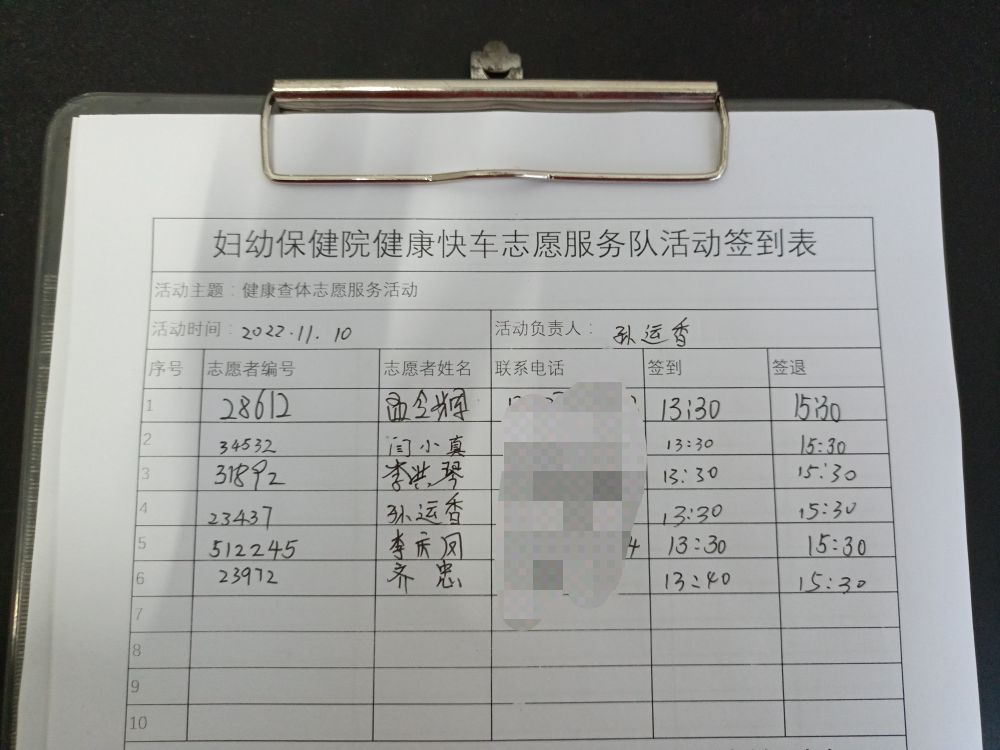 妇幼保健院健康快车志愿服务队活动签到表
活动主题：健康查体志愿服务活动
活动时间：2022.11.10 活动负责人：孙运香
序号 志愿者编号 志愿者姓名 联系电话 签到 签退
1 28612 13:30 15:30
2 34532 闫小真 13:30 15:30
3 31892 李洪琴 13:30 15:30
4 23437 孙运香 13:30 15:30
5 512245 李庆凤 4 13:30 15:30
6 23972 齐忠 13:40 15:30
7
8
9
10